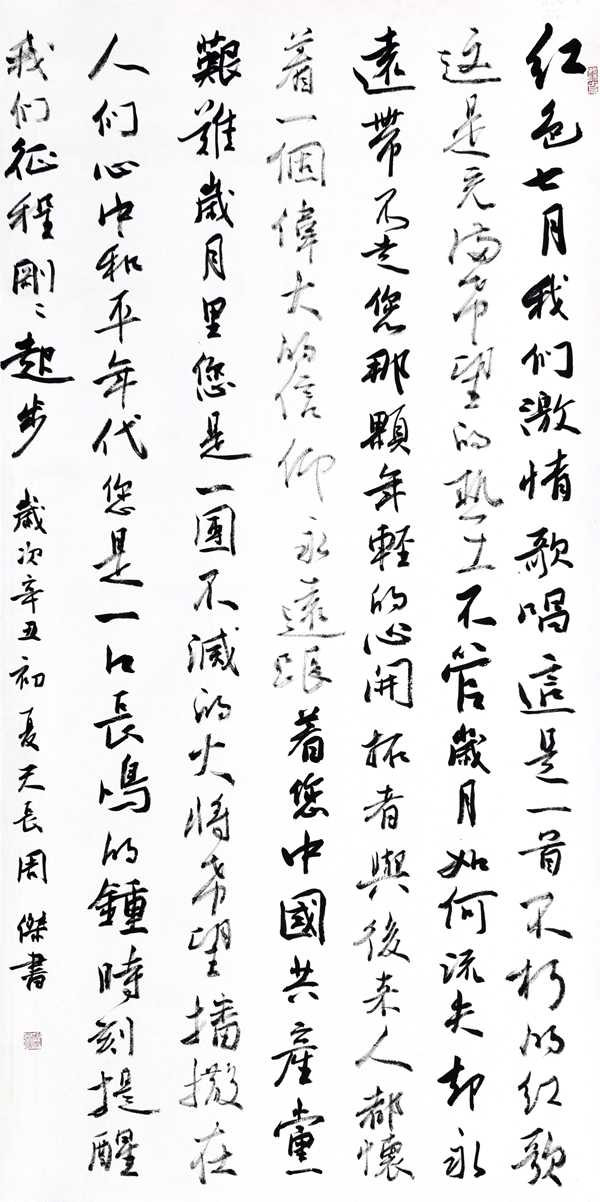 红色七月我们激情歌唱這是一首不朽的红歌
这是充满希望的热土不管歲月如何流失却永
遠帶不走您那顆年輕的心開拓者與後来人都懷
着一個偉大的信仰永遠跟着您中國共產黨
艱難歲月里您是一團不滅的火将希望播撒在
人们心中和平年代您是一口長鳴的鍾時刻提醒
我们征程剛〻起步 歲次辛丑初夏天長周傑書